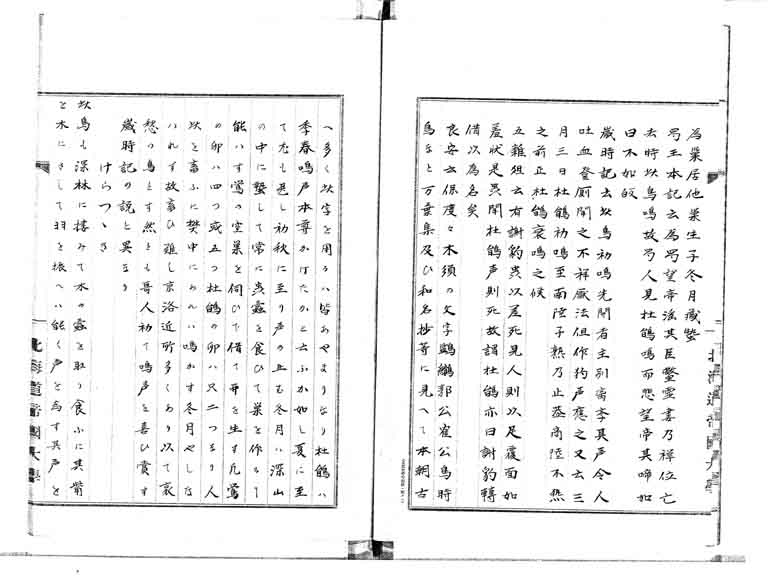 為巣居他巣生子冬月蔵蟄
蜀王本記云為蜀望帝淫其臣鼈霊妻乃禅位亡
去時此鳥鳴故蜀人見杜鵑鳴而悲望帝其啼如
曰不如帰
歳時記云此鳥初鳴先聞者主別離学其声令人
吐血登厠聞之不祥厭法但作狗声應之又云三
月三日杜鵑初鳴至商陸子熟乃止蓋商陸不熟
之前正杜鵑哀鳴之候
五雜俎云有謝豹虫以羞死見人則以足覆面如
羞状是虫聞杜鵑声則死故謂杜鵑亦曰謝豹轉
借以為名矣
良安云保度々木須の文字郭公霍公鳥時
鳥等と万葉集及ひ和名抄等に見へて本綱古
北海道帝國大學
へ多く此字を用うハ皆あやまりなり杜鵑ハ
季春鳴声本尊かけたかと云ふか如し夏に至
て尤も甚し初秋に至り声の止も冬月ハ深山
の中に蟄して常に虫蠧を食ひて巣を作る
能ハす鶯の空巣を伺ひて借て卵を生す凡鶯
の卵ハ四つ或五つ杜鵑の卵ハ只二つなり人
此を畜ふに樊中にあれハ鳴かす冬月やしな
ハれす故畜ひ難し京洛近所多くあり以て哀
愁の鳥とす然とも哥人初て鳴声を喜ひ賞す
歳時記の説と異なり
けらつゝき
此鳥も深林に棲みて木の蠧を取り食ふに其觜
と木にさして羽を振へハ能く声を為す其声と
北海道帝國大學